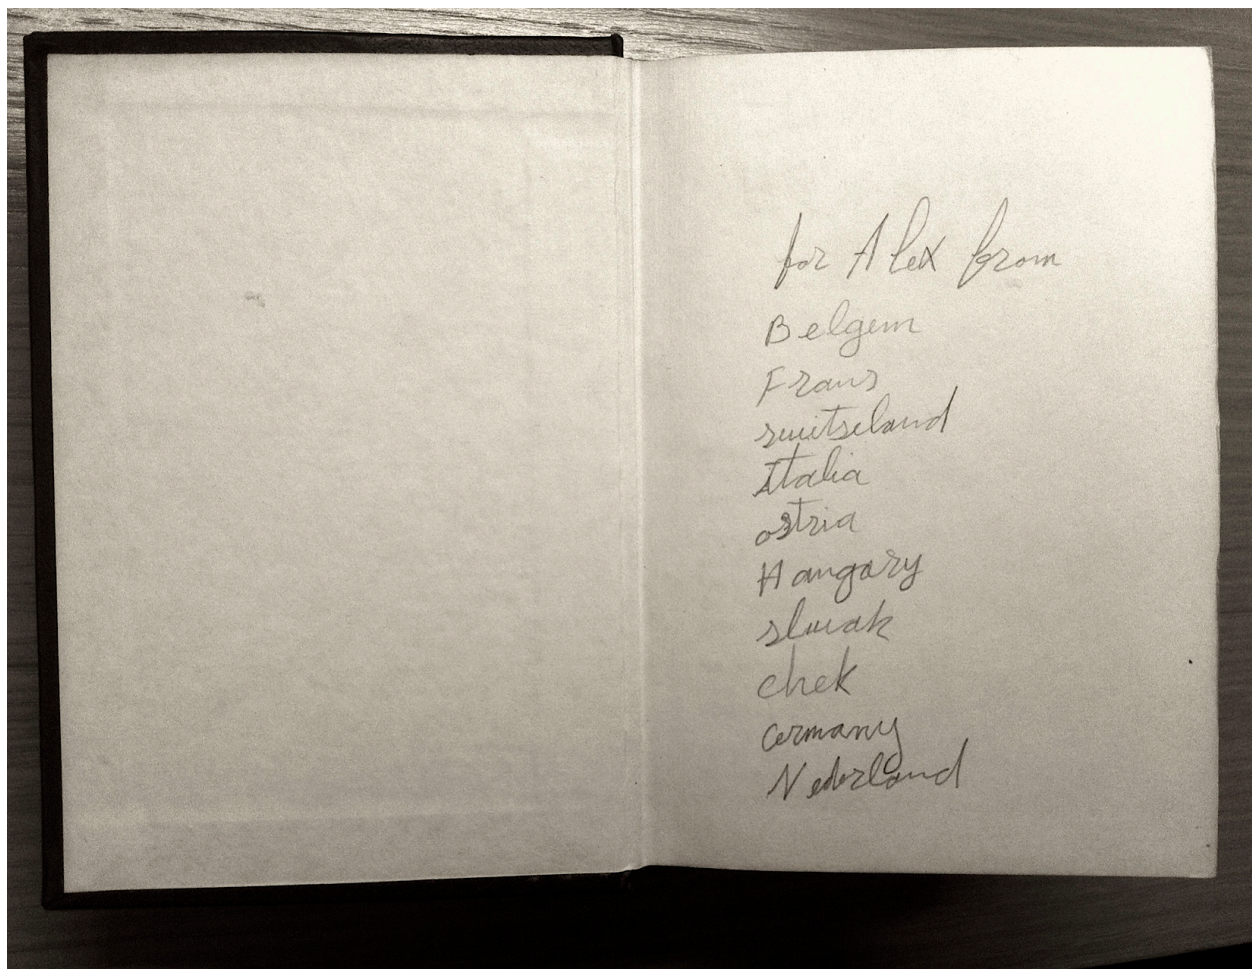 for Alex from
Belgem
Frans
switseland
Italia
ostria
Hangary
slwak
chek
Germany
Nederland